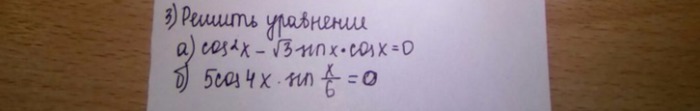 3) Решить уравнение
а) cos²x - √3 sin x · cos x = 0
б) 5cos 4x · sin x/6 = 0